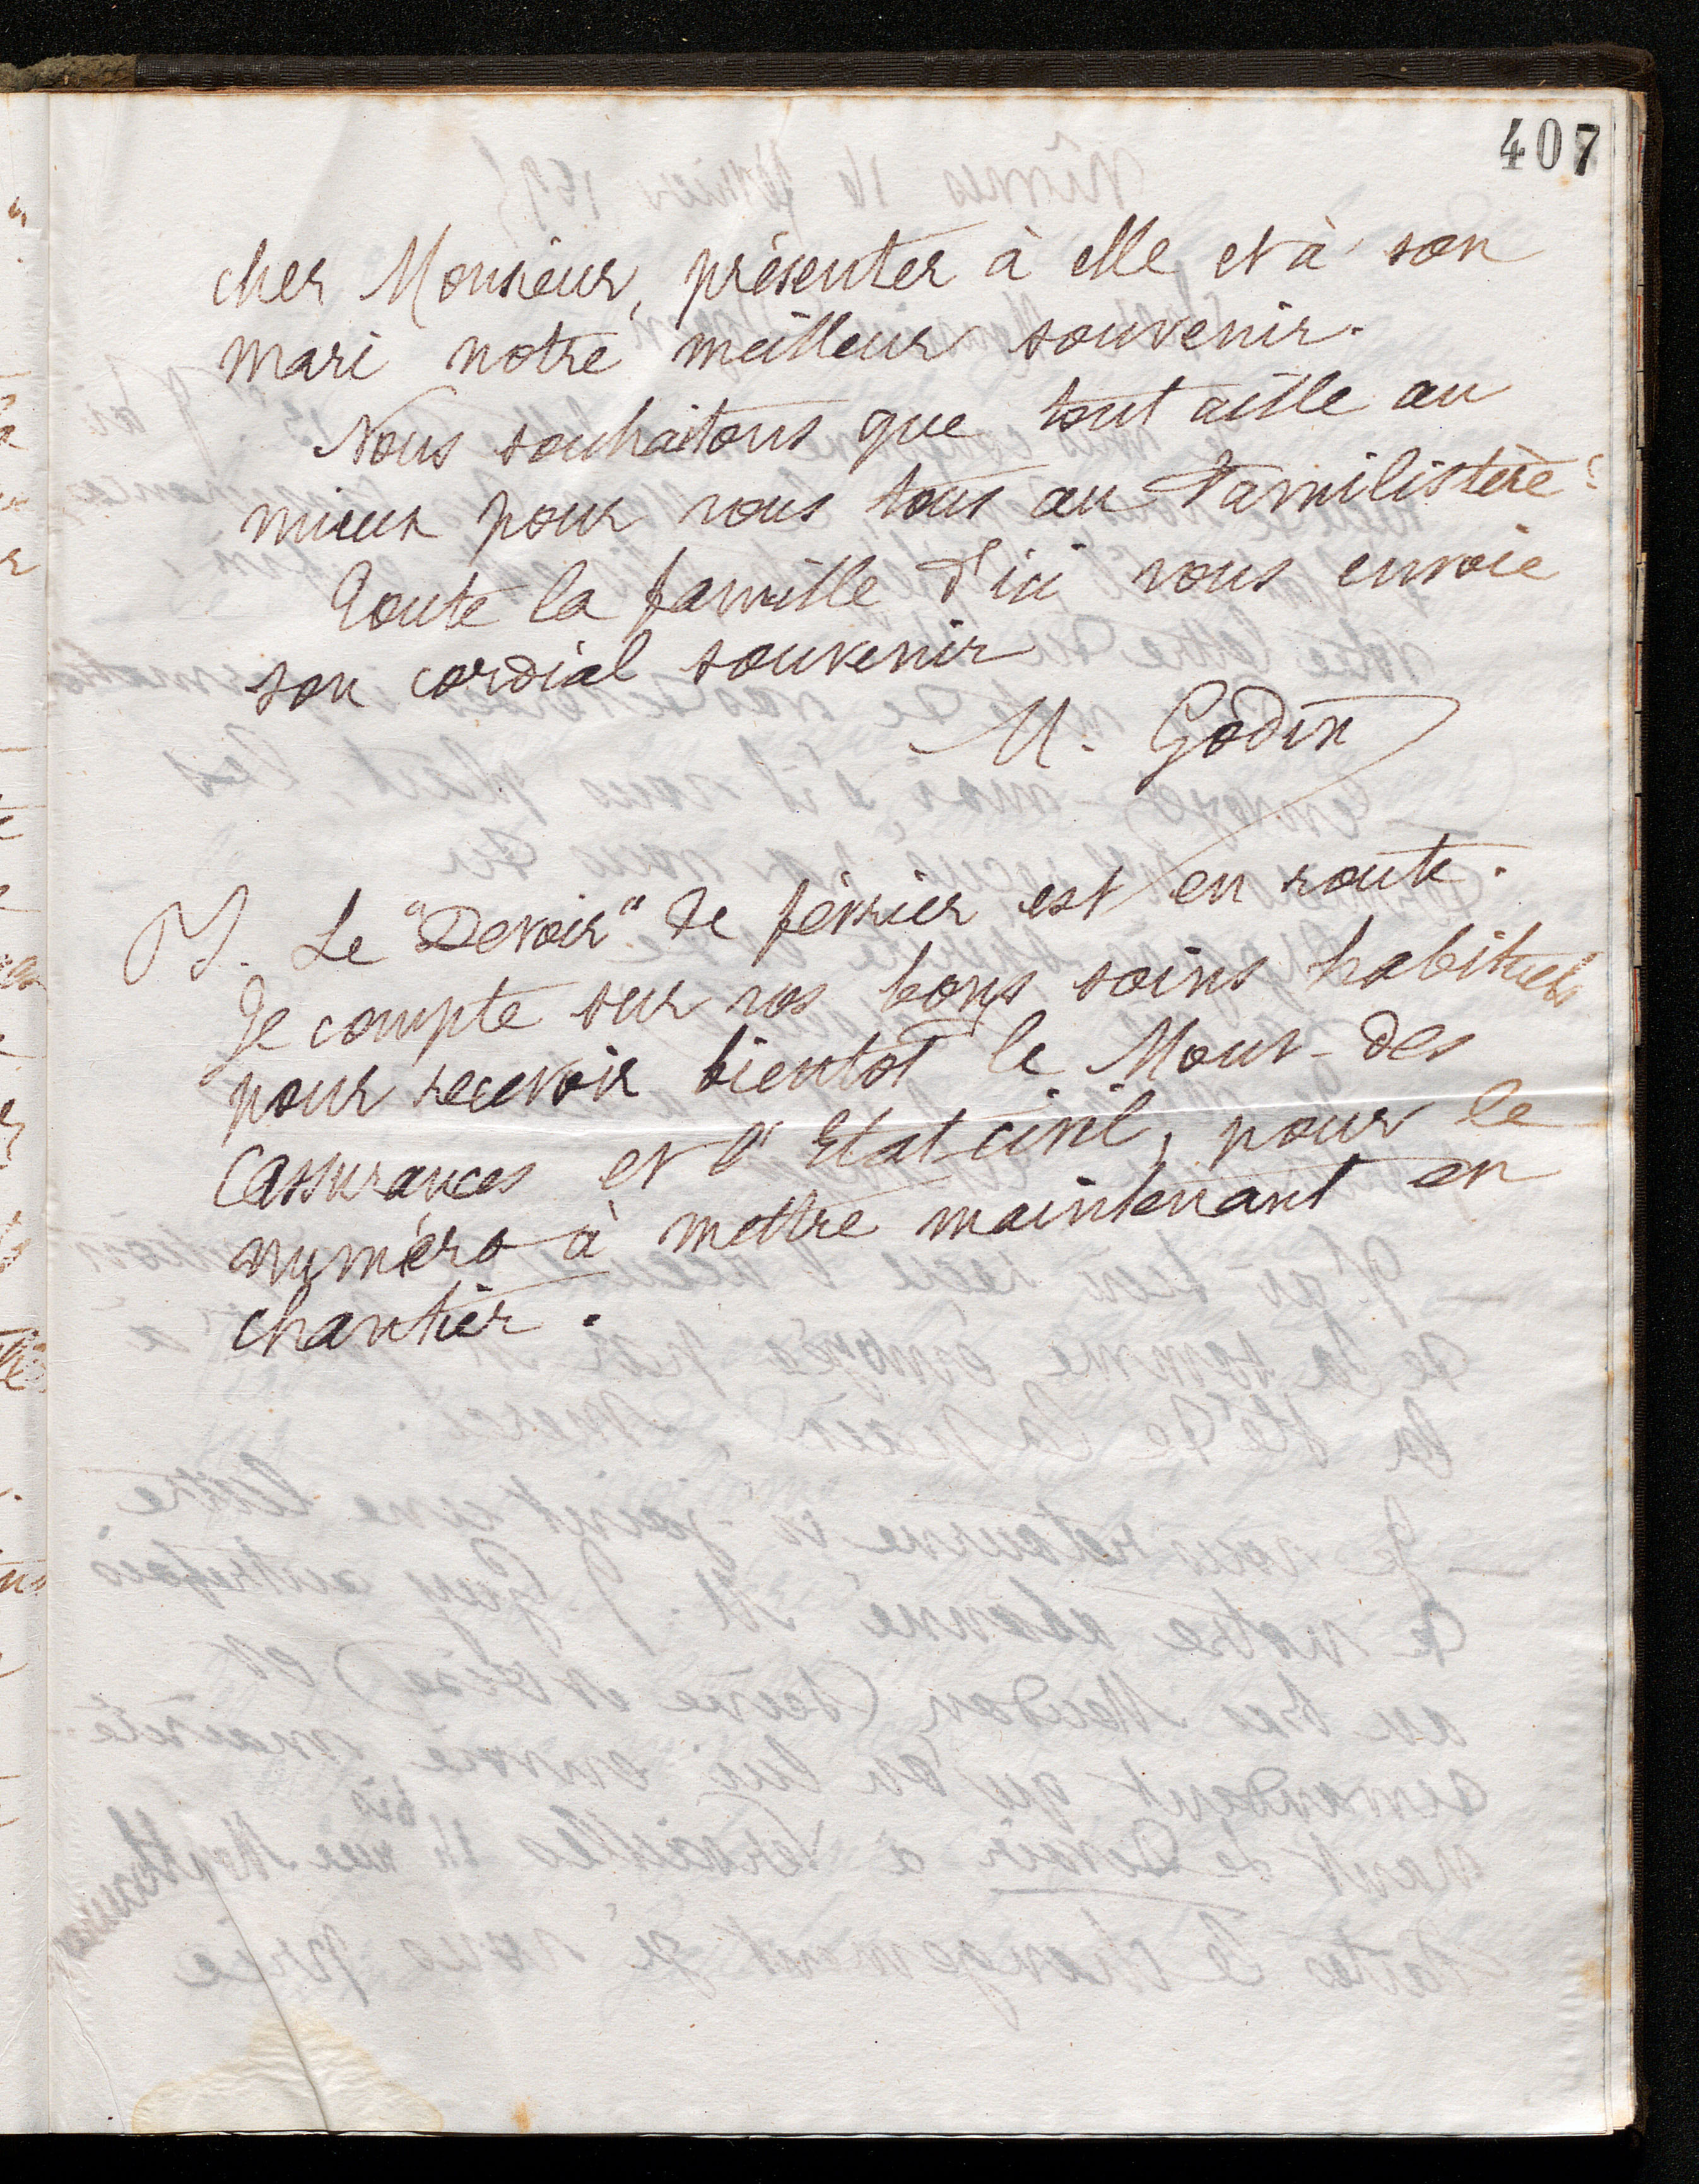 407
cher Monsieur, présenter à elle et à son
mari notre meilleur souvenir.
Nous souhaitons que tout aille au
mieux pour vous tous au Familistère.
Toute la famille d'ici vous envoie
son cordial souvenir
M. Godin
Le "Devoir" de février est en route.
Je compte sur vos bons soins habituels
pour recevoir bientôt le Mouv- des
Assurances et l'Etat civil, pour le
numéro à mettre maintenant en
chantier.